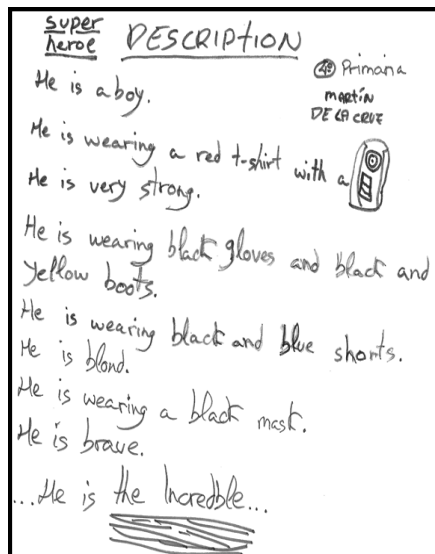 super
heroe
DESCRIPTION
4º Primaria
MARTÍN
DE LA CRUZ
He is a boy.
He is wearing a red t-shirt with a
He is very strong.
He is wearing black gloves and black and
yellow boots.
He is wearing black and blue shorts.
He is blond.
He is wearing a black mask.
He is brave.
...He is the Incredble...